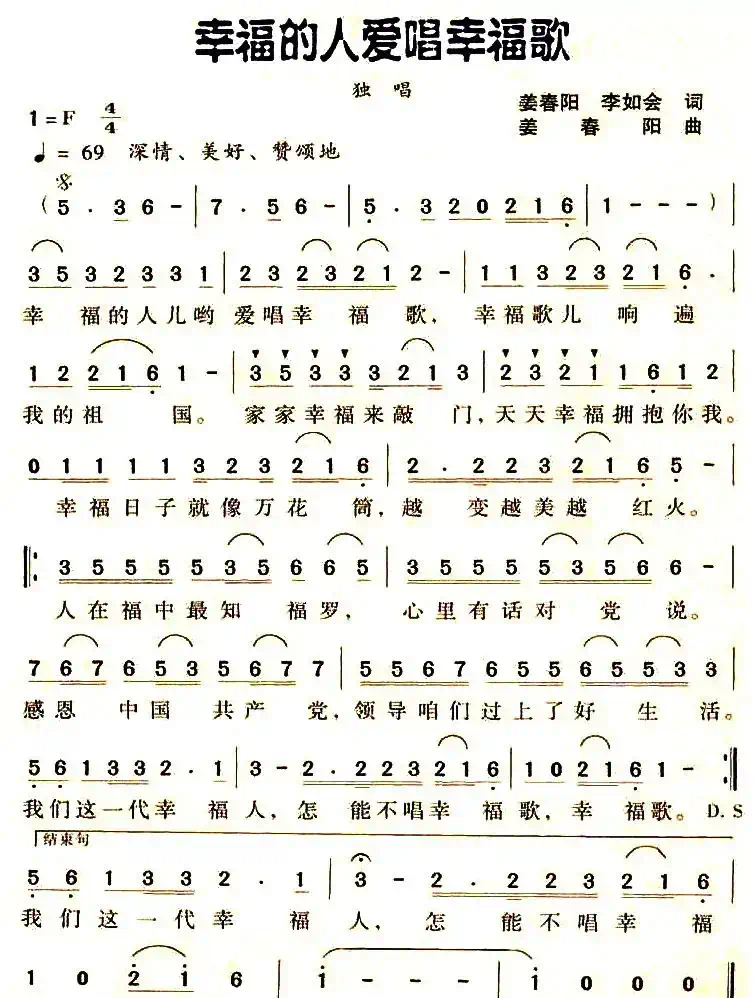 幸福的人爱唱幸福歌
独 唱
1=F 4/4
姜春阳 李如会 词
姜 春 阳 曲
♩= 69 深情、美好、赞颂地
( 5 . 3 6 - | 7 . 5 6 - | 5 . 3 2 0 2 1 6 | 1 - - - ) |
3 5 3 2 3 3 1 | 2 3 2 3 2 1 2 - | 1 1 3 2 3 2 1 6 .
幸 福的人儿哟 爱唱幸 福 歌, 幸福歌儿 响 遍
1 2 2 1 6 1 - | 3 5 3 3 3 2 1 3 | 2 3 2 1 1 6 1 2
我的祖 国。 家家幸福来敲 门,天天幸福拥抱你我。
0 1 1 1 1 1 3 2 3 2 1 6 | 2 . 2 2 3 2 1 6 5 - |
幸福日子就像万花 筒,越 变越美越 红火。
3 5 5 5 5 3 5 6 6 5 | 3 5 5 5 5 3 5 6 6 - |
人在福中最知 福罗, 心里有话对 党 说。
7 6 7 6 5 3 5 6 7 7 | 5 5 6 7 6 5 5 6 5 5 3 3
感恩 中国 共产 党,领导咱们过上了好 生 活。
5 6 1 3 3 2 . 1 | 3 - 2 . 2 2 3 2 1 6 | 1 0 2 1 6 1 - :|
我们这一代幸 福人,怎 能不唱幸 福歌,幸 福歌。D.S
结束句
5 6 1 3 3 2 . 1 | 3 - 2 . 2 2 3 2 1 6
我们这一代幸 福 人, 怎 能不唱幸 福
1 0 2 1 6 | 1 - - - | 1 0 0 0